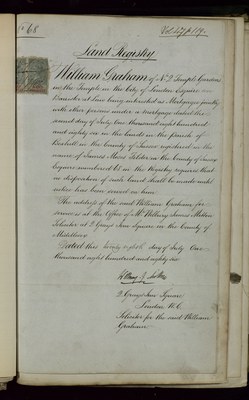 No 68
Land Registry
William Graham of No 2 Temple Gardens
in the Temple in the City of London Esquire
Barrister at Law being interested as Mortgagee jointly
with other persons under a Mortgage dated the
second day of July One thousand eight hundred
and eighty six in the lands in the parish of
in the County of Sussex registered in the
name of Samuel
Esquire numbered 68 in the Registry requires that
no disposition of such land shall be made until
notice has been served on him
The address of the said William Graham for
service is at the Office of Mr William James
Solicitor at 2 Grays Inn Square in the County of
Middlesex
Dated this twenty eighth day of July One
thousand eight hundred and eighty six
2 Grays Inn Square
London W.C.
Solicitor for the said William
Graham